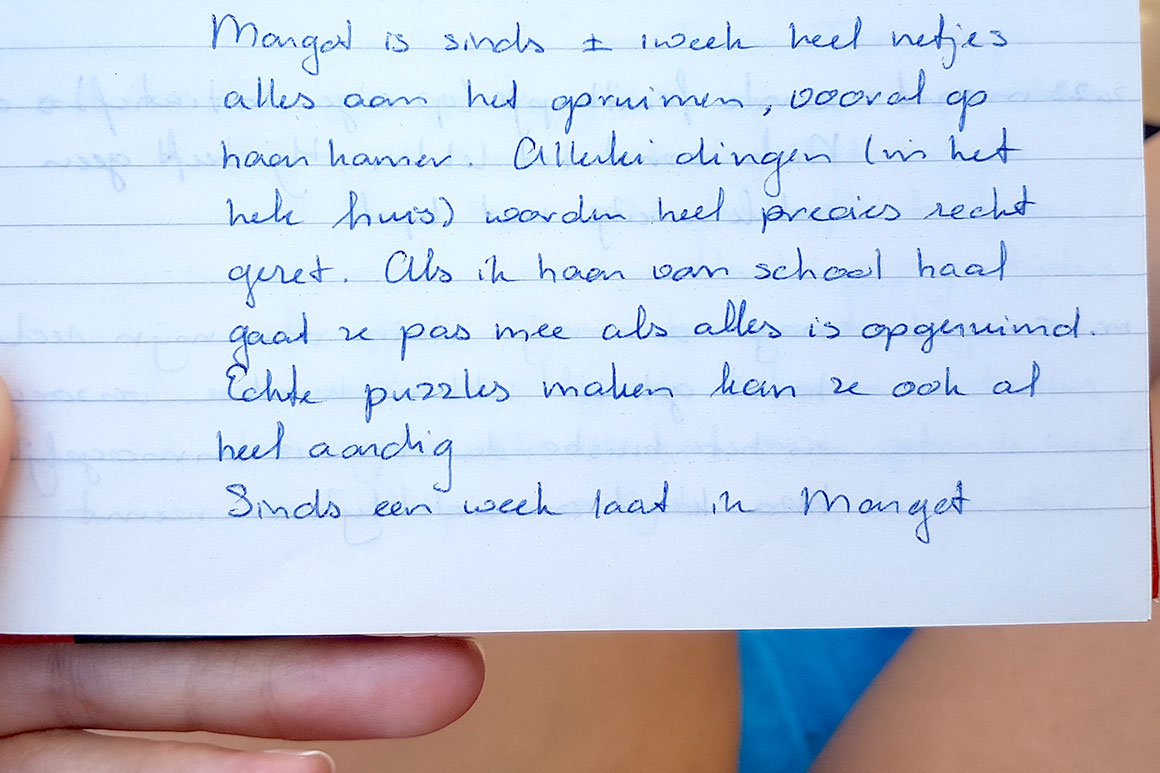 Margot is sinds ± 1 week heel netjes
alles aan het opruimen, vooral op
haar kamer. Allerlei dingen (in het
hele huis) worden heel precies recht
gezet. Als ik haar van school haal
gaat ze pas mee als alles is opgeruimd.
Echte puzzles maken kan ze ook al
heel aardig
Sinds een week laat ik Margot